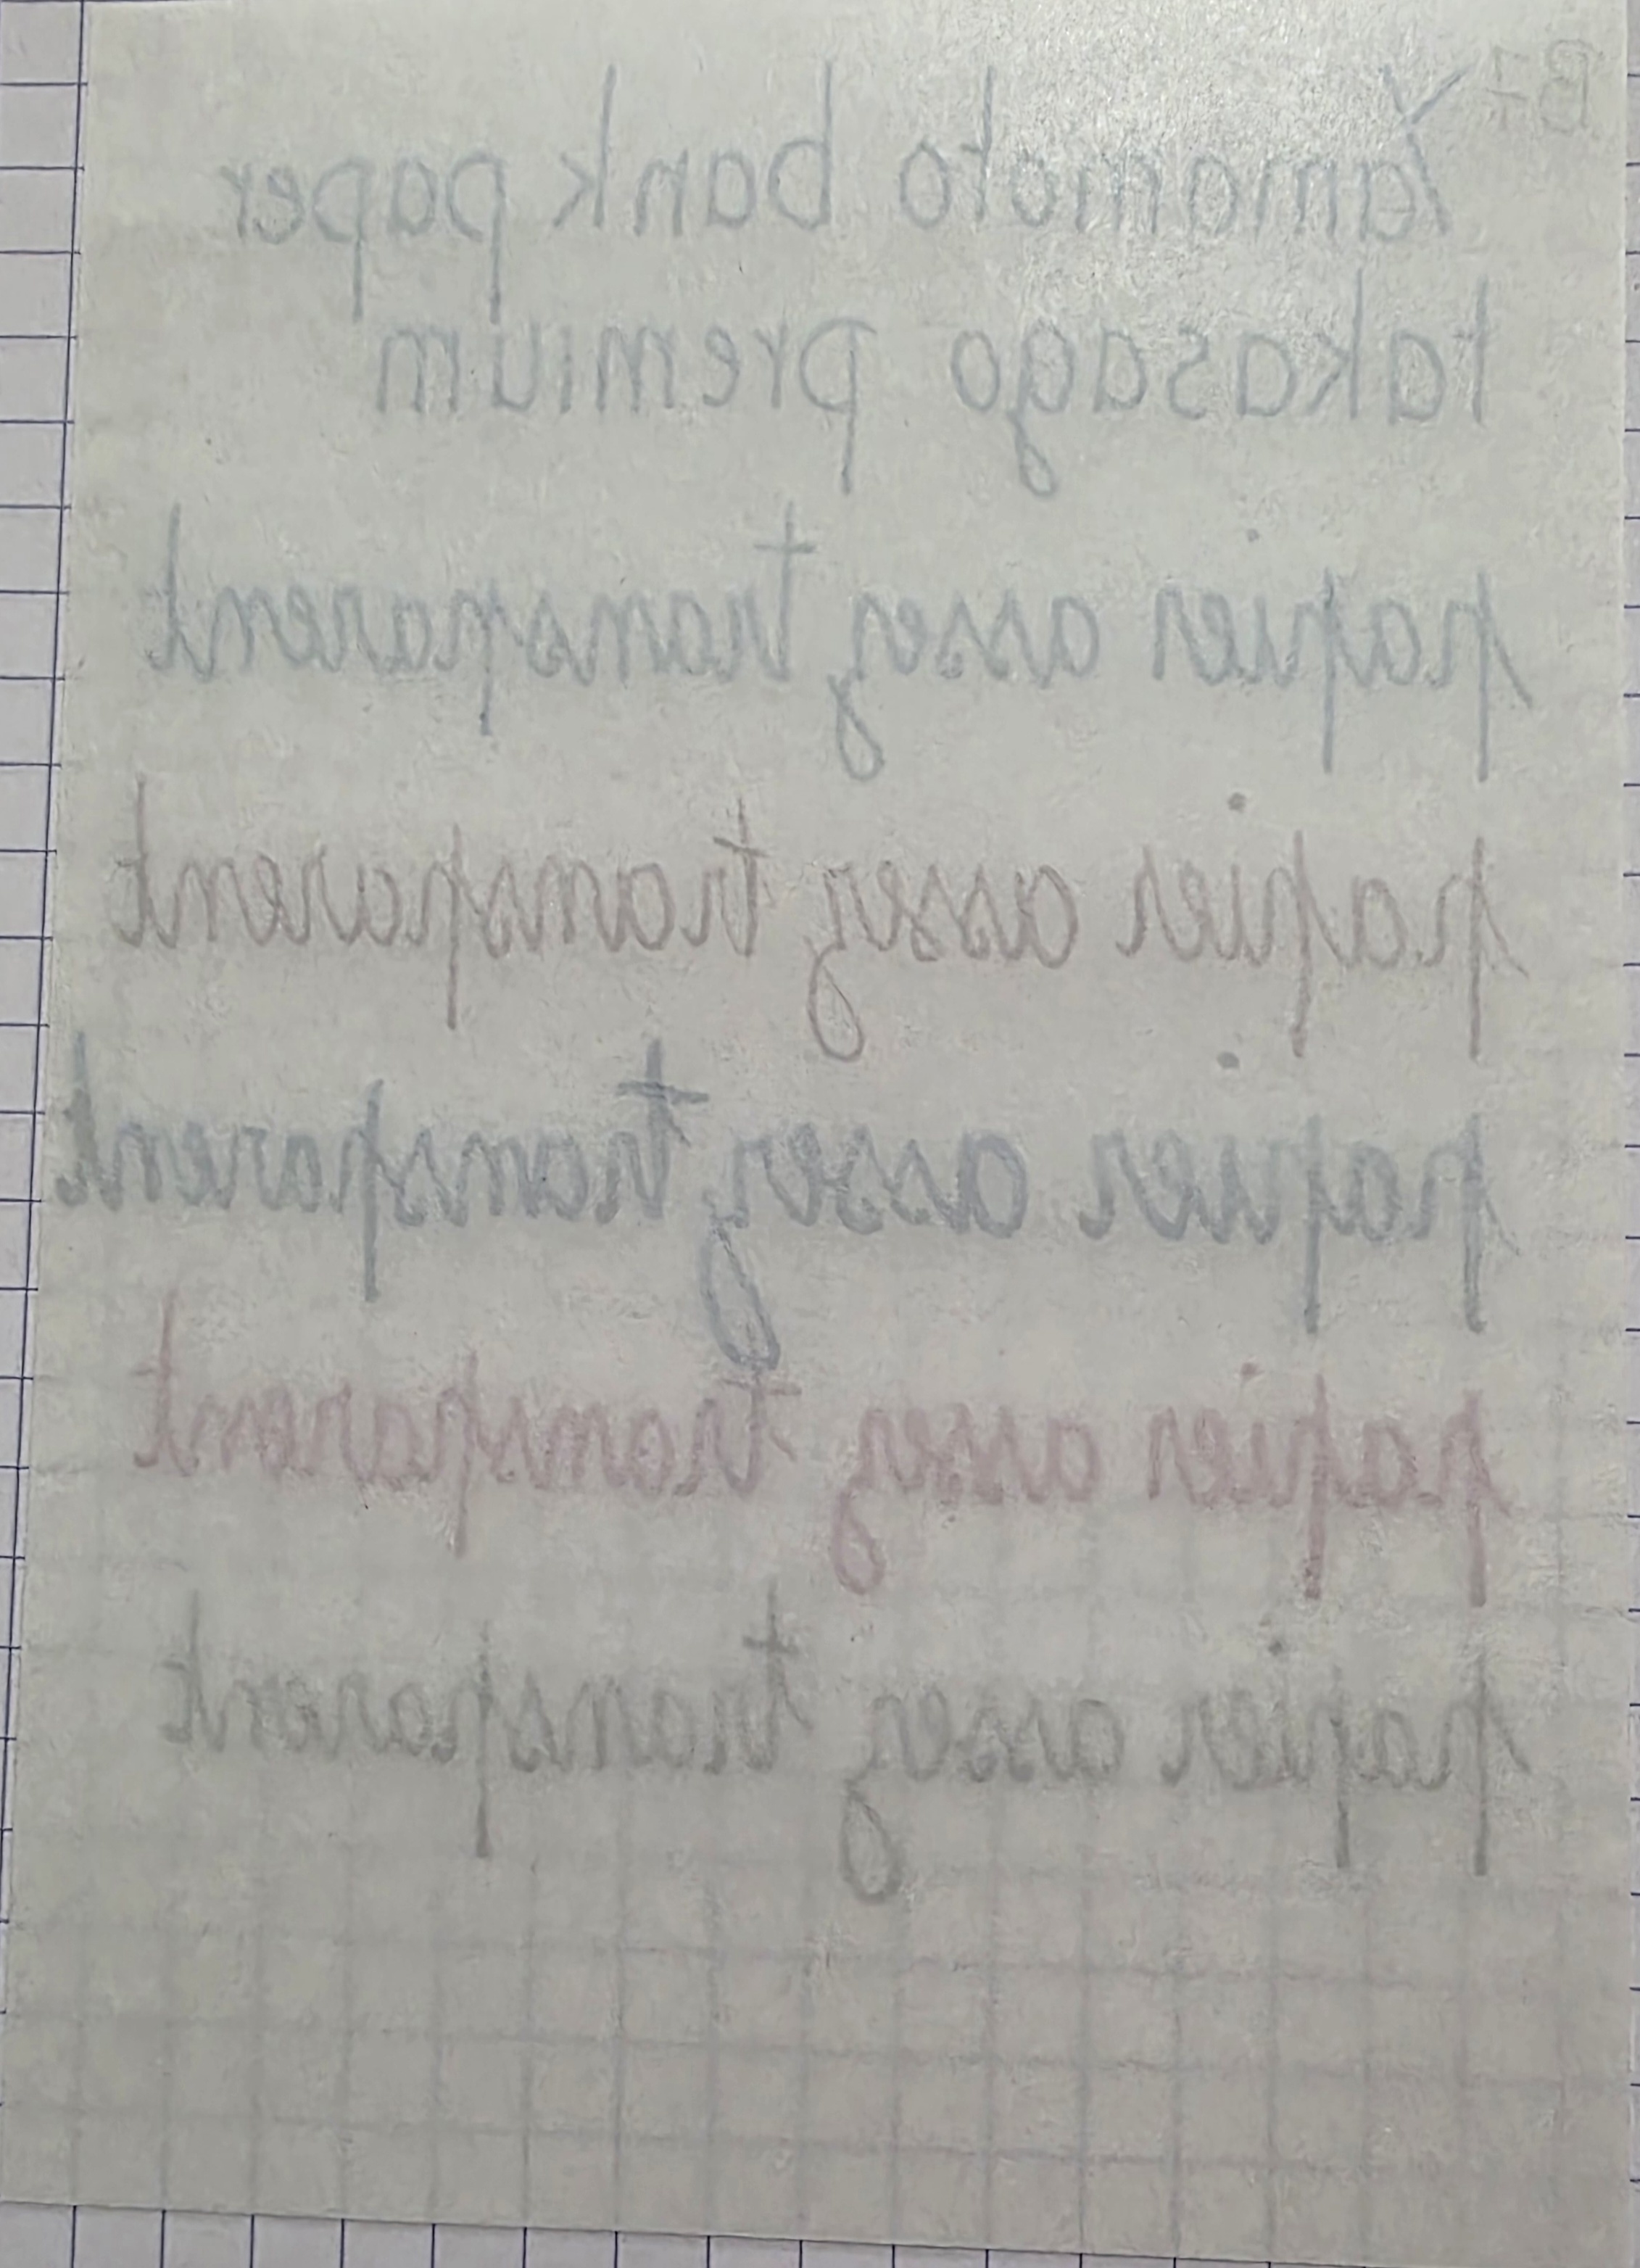 B7
Yamamoto bank paper
takasago premium
papier assez transparent
papier assez transparent
papier assez transparent
papier assez transparent
papier assez transparent